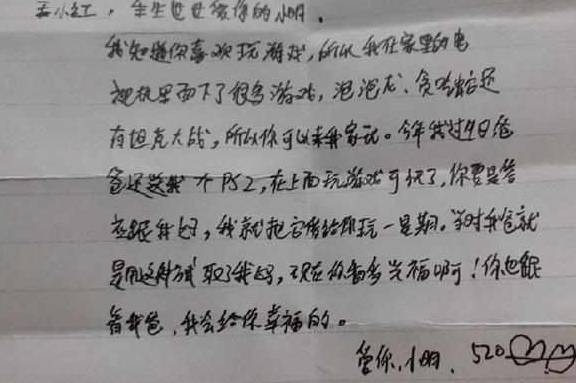 王小红，生生世世爱你的小明。
我知道你喜欢玩游戏，所以我在家里的电
视机里面下了很多游戏，泡泡龙、贪吃蛇还
有坦克大战，所以你可以来我家玩。今年我过生日爸
爸还送我个PS2，在上面玩游戏可好了，你要是答
应跟我好，我就把它借给你玩一星期。当时我爸就
是用这种方式取了我妈，现在你看多幸福啊！你也跟
着我吧，我会给你幸福的。
爱你，小明，520